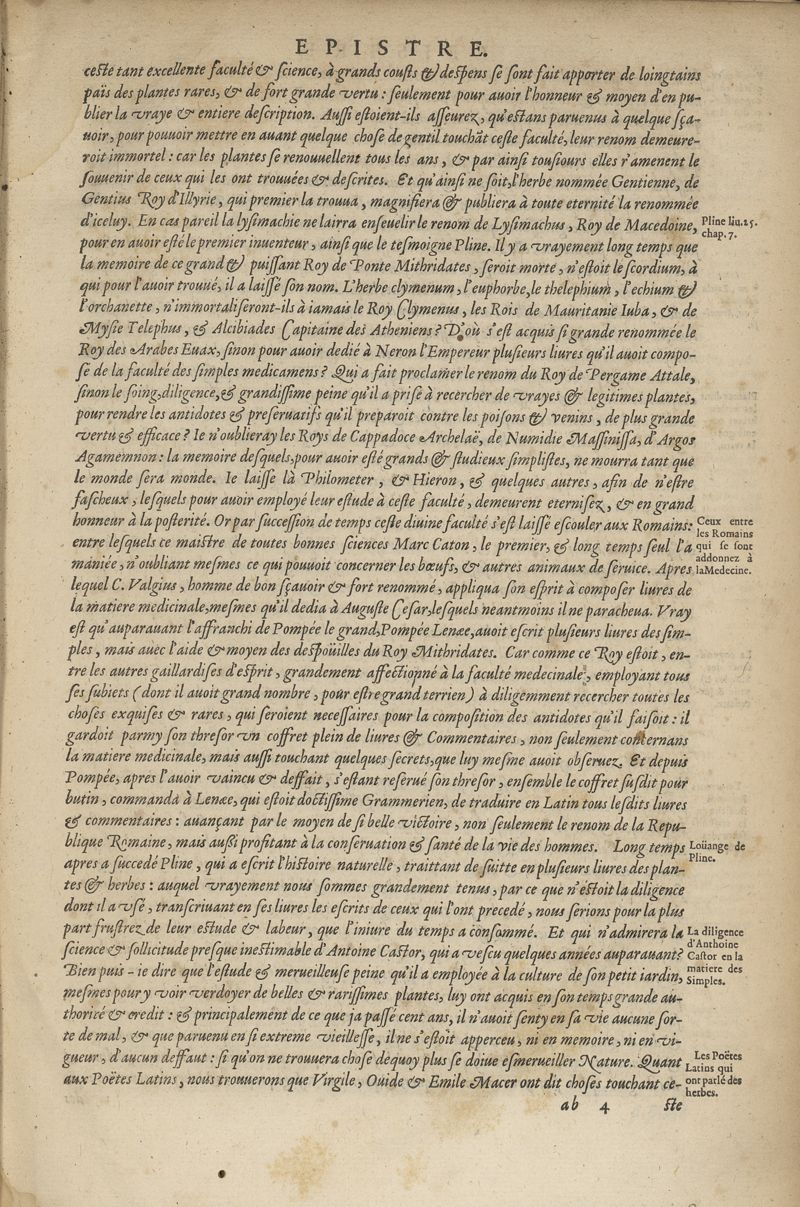 EPISTRE.
ceste tant excellente faculté & science, à grands cousts & despens se sont fait apporter de loingtains
païs des plantes rares, & de fort grande vertu : seulement pour auoir l'honneur & moyen d'en pu-
blier la vraye & entiere description. Aussi estoient-ils asseurez, qu'estans paruenus à quelque sça-
uoir, pour pouuoir mettre en auant quelque chose de gentil touchãt ceste faculté, leur renom demeure-
roit immortel : car les plantes se renouuellent tous les ans, & par ainsi tousiours elles r'amenent le
souuenir de ceux qui les ont trouuées & descrites. Et qu'ainsi ne soit, l'herbe nommée Gentienne, de
Gentius Roy d'Illyrie, qui premier la trouua, magnifiera & publiera à toute eternité la renommée
d'iceluy. En cas pareil la lysimachie ne lairra enseuelir le renom de Lysimachus, Roy de Macedoine,
Pline liu. 25.
chap. 7.
pour en auoir esté le premier inuenteur, ainsi que le tesmoigne Pline. Il y a vrayement long temps que
la memoire de ce grand & puissant Roy de Ponte Mithridates, seroit morte, n'estoit le scordium, à
qui pour l'auoir trouué, il a laissé son nom. L'herbe clymenum, l'euphorbe, le thelephium, l'echium &
l'orchanette, n'immortaliseront-ils à iamais le Roy Clymenus, les Rois de Mauritanie Iuba, & de
Mysie Telephus, & Alcibiades Capitaine des Atheniens ? D'où s'est acquis si grande renommée le
Roy des Arabes Euax, sinon pour auoir dedié à Neron l'Empereur plusieurs liures qu'il auoit compo-
sé de la faculté des simples medicamens ? Qui a fait proclamer le renom du Roy de Pergame Attale,
sinon le soing, diligence, & grandissime peine qu'il a prise à recercher de vrayes & legitimes plantes,
pour rendre les antidotes & preseruatifs qu'il preparoit contre les poisons & venins, de plus grande
vertu & efficace ? Ie n'oublieray les Roys de Cappadoce Archelaë, de Numidie Massinissa, d'Argos
Agamemnon : la memoire desquels, pour auoir esté grands & studieux simplistes, ne mourra tant que
le monde sera monde. Ie laisse là Philometer, & Hieron, & quelques autres, afin de n'estre
fascheux, lesquels pour auoir employé leur estude à ceste faculté, demeurent eternisez, & en grand
honneur à la posterité. Or par succession de temps ceste diuine faculté s'est laissé escouler aux Romains:
Ceux entre
les Romains
qui se sont
addonnez à
la Medecine.
entre lesquels ce maistre de toutes bonnes sciences Marc Caton, le premier, & long temps seul l'a
maniée, n'oubliant mesmes ce qui pouuoit concerner les bœufs, & autres animaux de seruice. Apres
lequel C. Valgius, homme de bon sçauoir & fort renommé, appliqua son esprit à composer liures de
la matiere medicinale, mesmes qu'il dedia à Auguste Cesar, lesquels neantmoins il ne paracheua. Vray
est qu'auparauant l'affranchi de Pompée le grand, Pompée Lenæe, auoit escrit plusieurs liures des sim-
ples, mais auec l'aide & moyen des despoüilles du Roy Mithridates. Car comme ce Roy estoit, en-
tre les autres gaillardises d'esprit, grandement affectionné à la faculté medecinale, employant tous
ses subiets (dont il auoit grand nombre, pour estre grand terrien) à diligemment recercher toutes les
choses exquises & rares, qui seroient necessaires pour la composition des antidotes qu'il faisoit : il
gardoit parmy son thresor vn coffret plein de liures & Commentaires, non seulement concernans
la matiere medicinale, mais aussi touchant quelques secrets, que luy mesme auoit obseruez. Et depuis
Pompée, apres l'auoir vaincu & deffait, s'estant reserué son thresor, ensemble le coffret susdit pour
butin, commanda à Lenæe, qui estoit doctissime Grammerien, de traduire en Latin tous lesdits liures
& commentaires : auançant par le moyen de si belle victoire, non seulement le renom de la Repu-
blique Romaine, mais außi profitant à la conseruation & santé de la vie des hommes. Long temps
Loüange de
Pline.
apres a succedé Pline, qui a escrit l'histoire naturelle, traittant de suitte en plusieurs liures des plan-
tes & herbes : auquel vrayement nous sommes grandement tenus, par ce que n'estoit la diligence
dont il a vsé, transcriuant en ses liures les escrits de ceux qui l'ont precedé, nous serions pour la plus
part frustrez de leur estude & labeur, que l'iniure du temps a consommé. Et qui n'admirera la
La diligence
d'Anthoine
Castor en la
matiere des
Simples.
science & sollicitude presque inestimable d'Antoine Castor, qui a vescu quelques années auparauant ?
Bien puis-ie dire que l'estude & merueilleuse peine qu'il a employée à la culture de son petit iardin,
mesmes pour y voir verdoyer de belles & rarissimes plantes, luy ont acquis en son temps grande au-
thorité & credit : & principalement de ce que ja passé cent ans, il n'auoit senty en sa vie aucune sor-
te de mal, & que paruenu en si extreme vieillesse, il ne s'estoit apperceu, ni en memoire, ni en vi-
gueur, d'aucun deffaut : si qu'on ne trouuera chose dequoy plus se doiue esmerueiller Nature. Quant
Les Poëtes
Latins qui
ont parlé des
herbes.
aux Poëtes Latins, nous trouuerons que Virgile, Ouide & Emile Macer ont dit choses touchant ce-
ab 4 ste